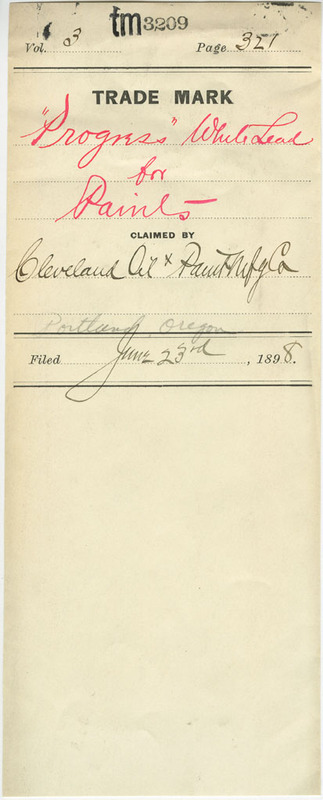 tm3209
Vol. 3 Page 321
TRADE MARK
"Progress" White Lead
for
Paints
CLAIMED BY
Cleveland Oil & Paint Mfg Co
Portland, Oregon
Filed June 23rd, 1898.